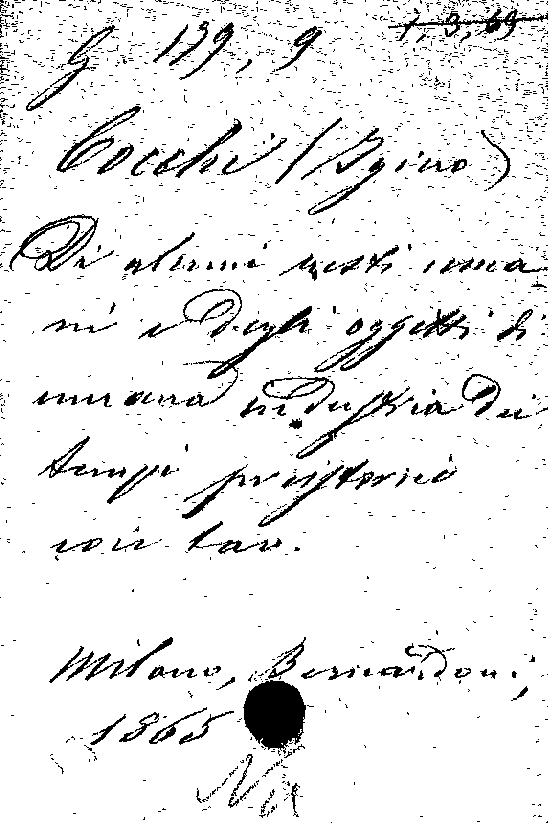 G. 139, 9
1, 3, 69
Cocchi (Igino)
Di alcuni resti uma
ni e degli oggetti di
umana industria dei
tempi preistorici
con tav.
Milano, Bernardoni,
1865